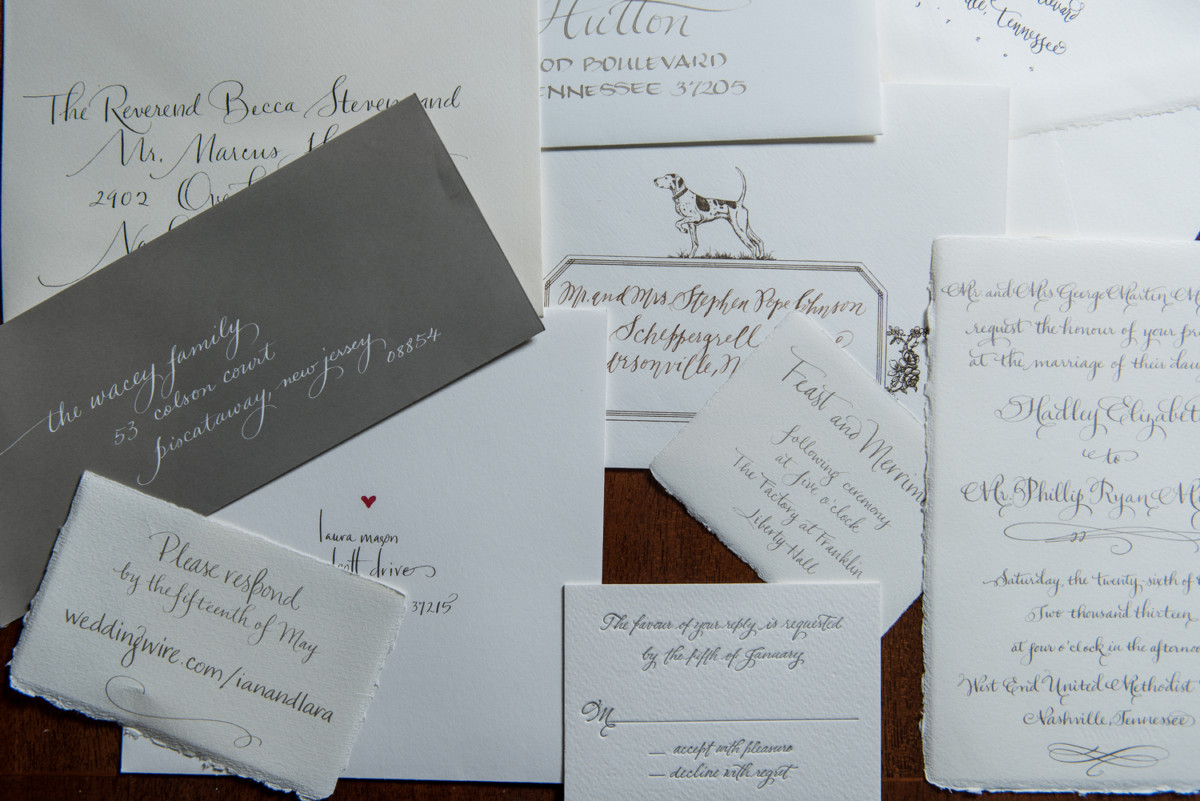 The Reverend Becca Stevens and
Mr. Marcus
2902
Hutton
OD BOULEVARD
ENNESSEE 37205
Tennessee
Mr. and Mrs. Stephen Pope Johnson
Scheppergrell
the wacey family
53 colson court
piscataway, new jersey
08854
laura mason
drive
37215
Please respond
by the fifteenth of May
weddingwire.com/ianandlara
Feast and Merrim
Following ceremony
at five o'clock
The Factory at Franklin
Liberty Hall
The favour of your reply is requested
by the fifth of January
M
accept with pleasure
decline with regret
Mr. and Mrs. George Martin
request the honour of your
at the marriage of their
Hadley Elizabet
to
Mr. Phillip Ryan
Saturday, the twenty sixth of
Two thousand thirteen
at four o'clock in the afternoo
West End United Methodist
Nashville, Tennessee